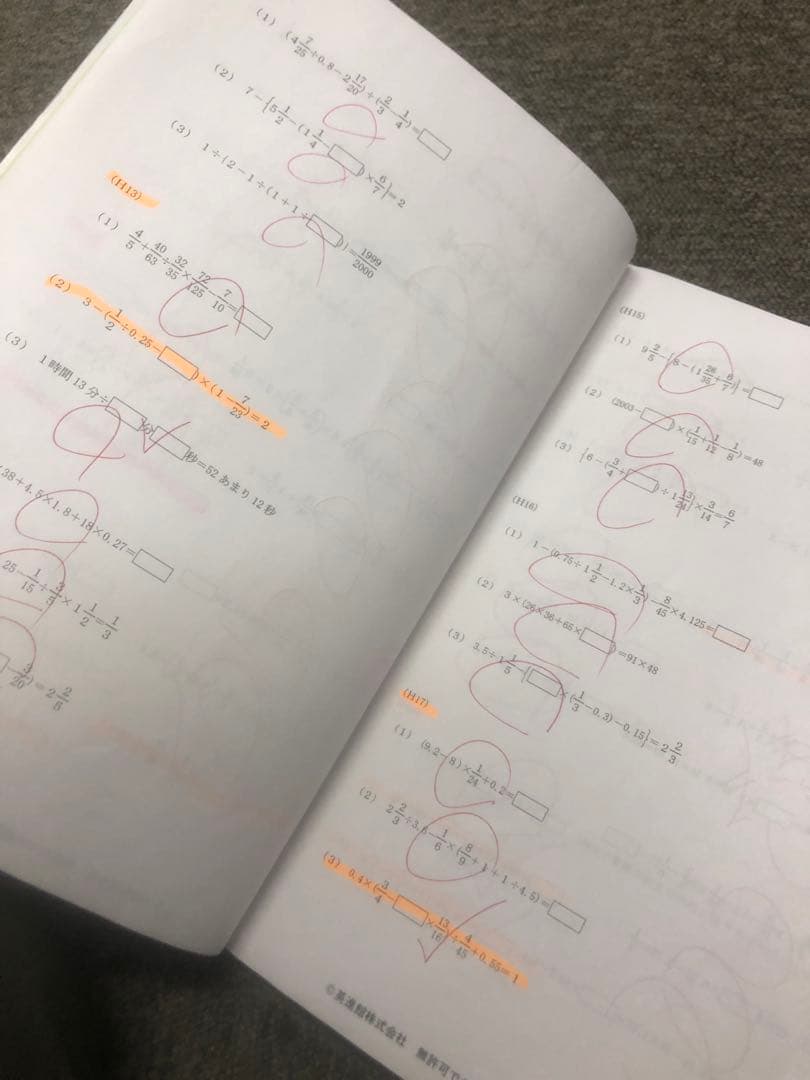 (1) (4 7/25 ÷ 0.8 − 2 17/20) ÷ (2/3 − 1/4) = □
(2) 7 − {5 1/2 − (1 1/4 − □) × 6/7} = 2
(3) 1 ÷ (2 − 1 ÷ (1 + 1 ÷ □)) = 1999/2000
(H13)
(1) 4/5 + 40/63 ÷ 32/35 × 72/125 − 7/10 = □
(2) 3 − (1/2 ÷ 0.25 − □) × (1 − 7/23) = 2
(3) 1時間13分 ÷ □分□秒 = 52 あまり 12秒
38 + 4.5 × 1.8 + 18 × 0.27 = □
25 − 1/15 ÷ 3/5 × 1 1/2 = 1/3
□ − 3/20) = 2 2/5
(H15)
(1) 9 2/5 − {8 − (1 26/35 + 6/7)} = □
(2) (2003 − □) × (1/15 + 1/12 − 1/8) = 48
(3) {6 − (3/4 + □) ÷ 1 13/24} × 3/14 = 6/7
(H16)
(1) 1 − (0.75 ÷ 1 1/2 − 1.2 × 1/3) − 8/45 × 4.125 = □
(2) 3 × (26 × 36 + 65 × □) = 91 × 48
(3) 3.5 ÷ 1 1/5 − {□ × (1/3 − 0.3) − 0.15} = 2 2/3
(H17)
(1) (9.2 − 8) × 1/24 ÷ 0.2 = □
(2) 2 2/3 ÷ 3.6 − 1/6 × (8/9 + 1 + 1 ÷ 4.5) = □
(3) 0.4 × (3/4 − □ × 13/16) ÷ 4/45 + 0.55 = 1
©英進館株式会社 無許可で